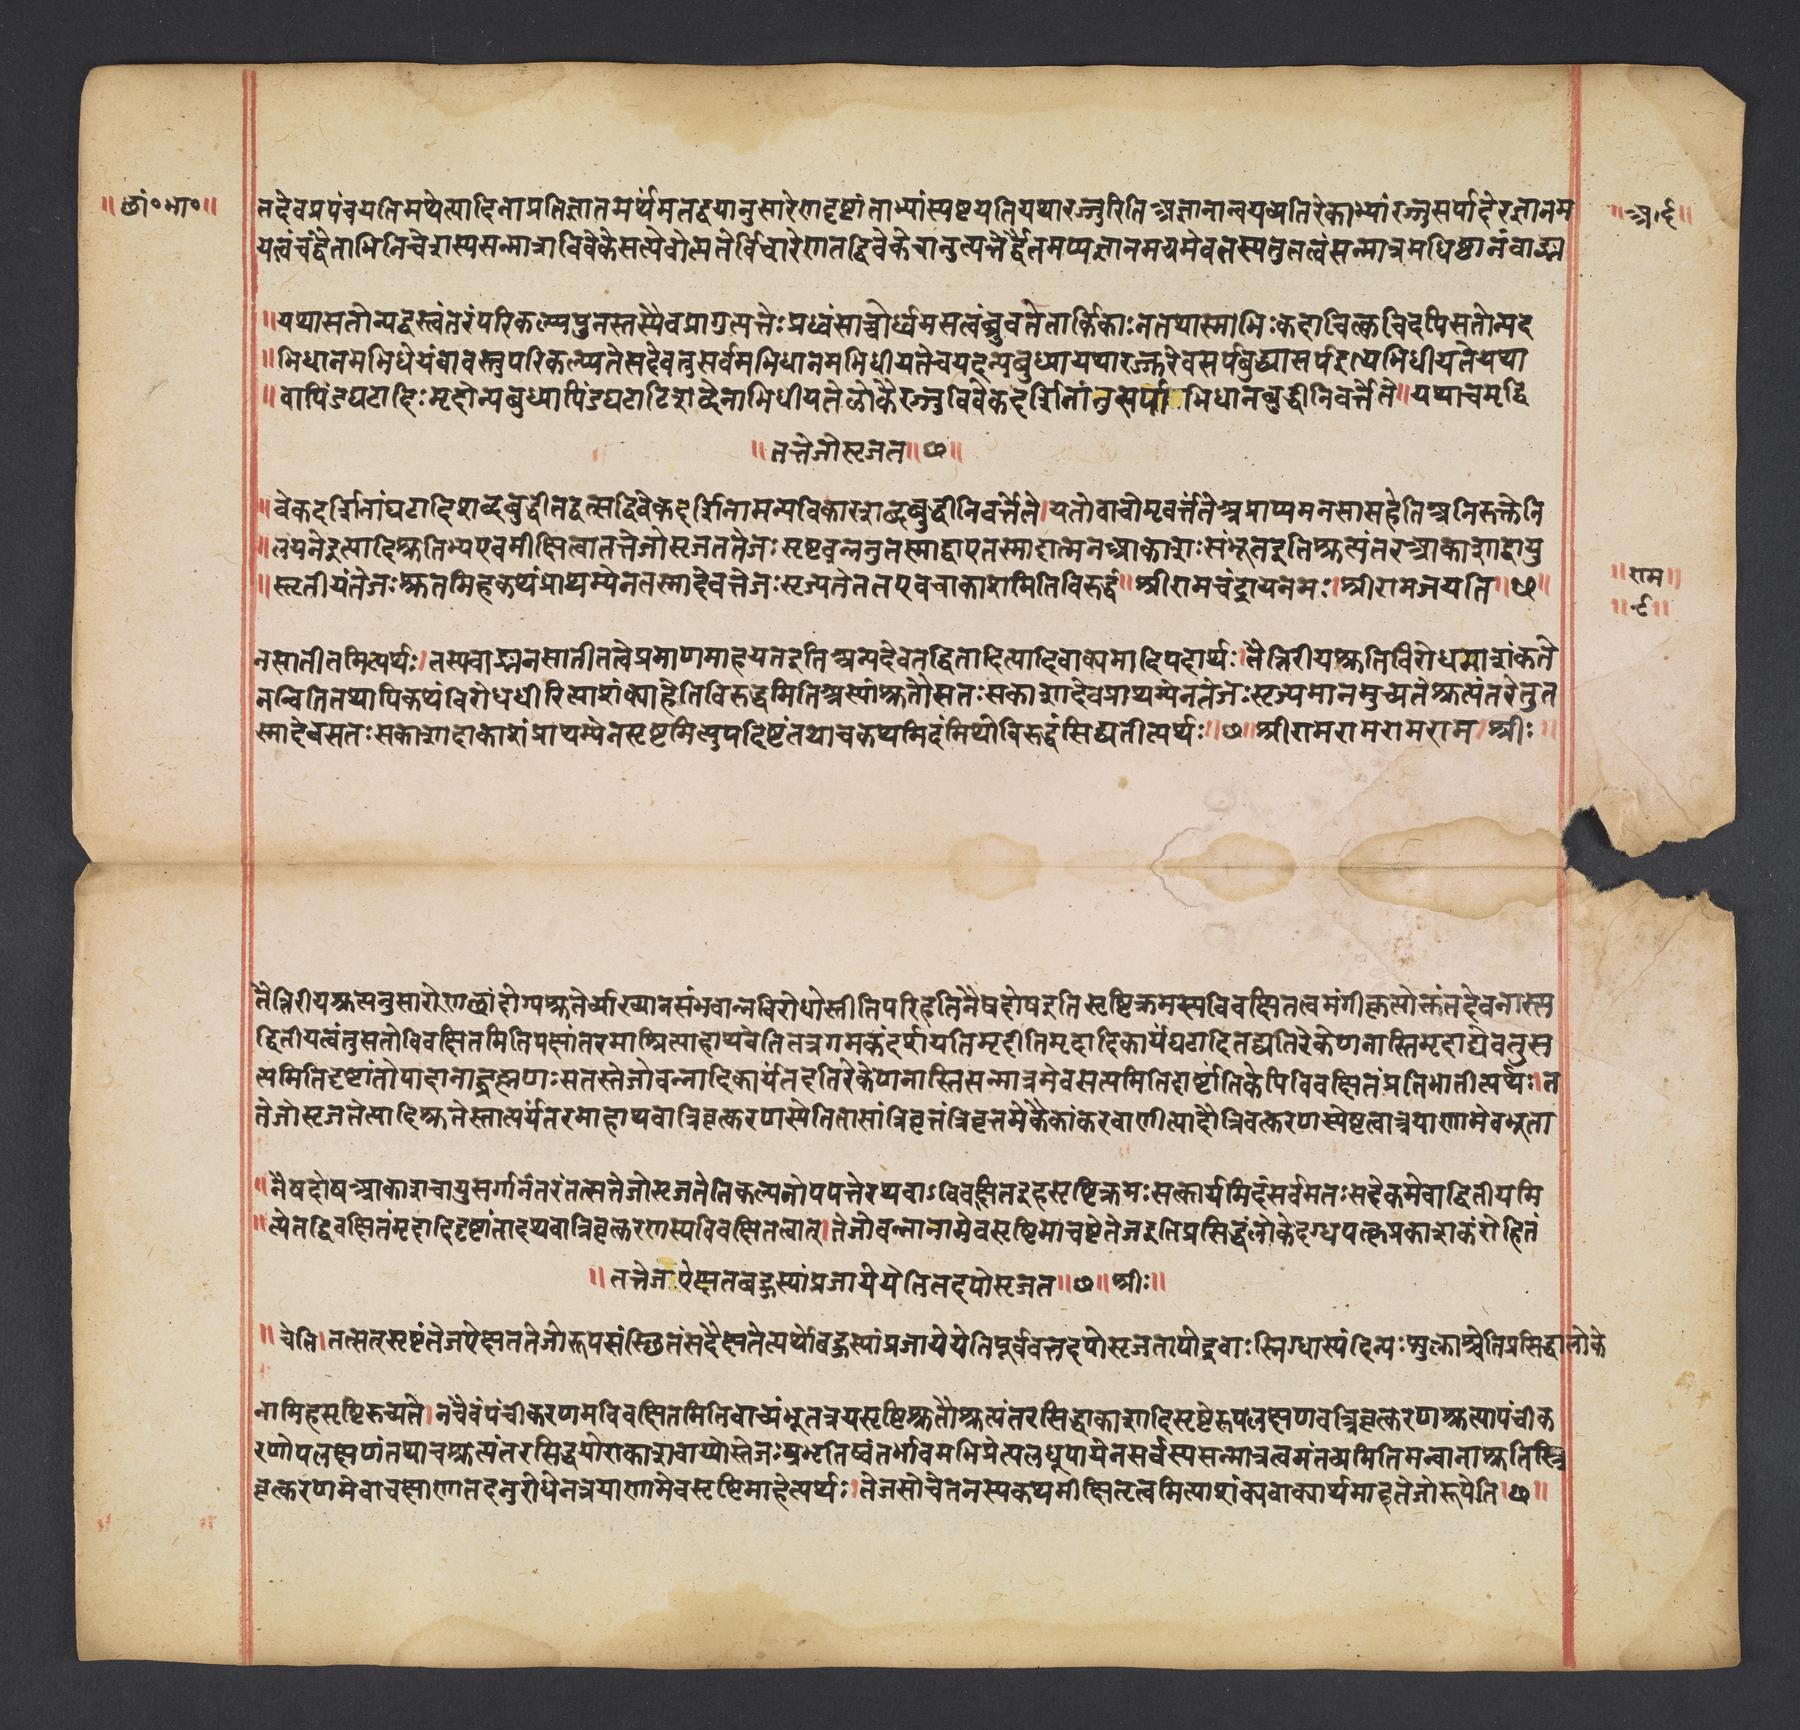 ॥छां०भा०॥
॥अ०ई॥
तदेवप्रपंचयतिमथेत्यादिनाप्रतिज्ञातमर्थमतद्वयानुसारेणदृष्टांताभ्यांस्पष्टयतियथारज्जुरितिअज्ञानान्वयव्यतिरेकाभ्यांरज्जुसर्पादेरज्ञानम
यत्वंचद्वैताभिनिवेशस्यसन्मात्राविवेकेसत्येवोत्पत्तेर्विचारेणतद्विवेकेचानुत्पत्तेर्द्वैतमप्यज्ञानमयमेवतस्यतुतत्वंसन्मात्रमधिष्ठानंवाङ्म
॥यथासतोन्यद्वस्त्वंतरंपरिकल्प्यपुनस्तस्यैवप्रागुत्पत्तेःप्रध्वंसाच्चोर्ध्वमसत्वंब्रुवतेतार्किकाःनतथास्माभिःकदाचित्क्वचिदपिसतोन्यद
॥भिधानमभिधेयंवावस्तुपरिकल्प्यतेसदेवतुसर्वमभिधानमभिधीयतेचयदन्यबुध्यायथारज्जुरेवसर्पबुद्ध्यासर्पइत्यभिधीयतेयथा
॥वापिंडघटादिःमृदोन्यबुध्यापिंडघटादिशब्देनाभिधीयतेलोकेरज्जुविवेकदर्शिनांतुसर्पाभिधानबुद्धीनिवर्त्तेते॥यथाचमृद्वि
॥तत्तेजोसृजत॥छ॥
॥वेकदर्शिनांघटादिशब्दबुद्धीतद्वत्सद्विवेकदर्शिनामन्यविकारशब्दबुद्धीनिवर्त्तेते।यतोवाचोनिवर्त्ततेअप्राप्यमनसासहेतिअनिरुक्तेनि
॥लयनेइत्यादिश्रुतिभ्यएवमीक्षित्वातत्तेजोसृजततेजःसृष्टवन्ननुतस्माद्वाएतस्मादात्मनआकाशःसंभूतइतिश्रुत्यंतरआकाशाद्वायु
॥स्तृतीयंतेजःश्रुतमिहकथंप्राथम्येनतस्मादेवतेजःसृज्यतेततएवचाकाशमितिविरुद्धं॥श्रीरामचंद्रायनमः।श्रीरामजयति॥छ॥
॥राम॥
॥ई॥
नसातीतमित्यर्थः।तस्यवाङ्मनसातीतत्वेप्रमाणमाहयतइतिअन्यदेवेतद्विदितादित्यादिवाक्यमादिपदार्थः।तैत्तिरीयश्रुतिविरोधमाशंकते
नन्वितितथापिकथंविरोधधीरित्याशंक्याहेतिविरुद्धमितिअस्यांश्रुतौसतःसकाशादेवप्राथम्येनतेजःसृज्यमानमुच्यतेश्रुत्यंतरेतुत
स्मादेवसतःसकाशादाकाशंप्राथम्येनसृष्टमित्युपदिष्टंतथाचकथमिदंमिथोविरुद्धंसिद्ध्यतीत्यर्थः॥छ॥श्रीरामरामरामराम।श्रीः॥
तैत्तिरीयश्रुत्यनुसारेणछांदोग्यश्रुतेर्व्याख्यानसंभवान्नविरोधोस्तीतिपरिहरतिनैषदोषइतिसृष्टिक्रमस्यविवक्षितत्वमंगीकृत्योक्तंतदेवनास्त्य
द्वितीयत्वंतुसतोविवक्षितमितिपक्षांतरमाश्रित्याहाथवेतितत्रगमकंदर्शयतिमृदीतिमृदादिकार्यघटादितद्व्यतिरेकेणनास्तिमृदाद्येवतुस
त्यमितिदृष्टांतोपादानाद्ब्रह्मणःसतस्तेजोवन्नादिकार्यंतद्व्यतिरेकेणनास्तिसन्मात्रमेवसत्यमितिदार्ष्टांतिकेपिविवक्षितंप्रतिभातीत्यर्थः।त
तेजोसृजतेत्यादिश्रुतेस्तात्पर्यंतरमाहाथवात्रिवृत्करणस्येतितासांत्रिवृतंत्रिवृतमेकैकांकरवाणीत्यादौत्रिवत्करणस्येष्टत्वात्त्रयाणामेवभूता
॥नैषदोषआकाशवायुसर्गानंतरंतत्सत्तेजोसृजतेतिकल्पनोपपत्तेरथवाऽविवक्षितइहसृष्टिक्रमःसत्कार्यमिदंसर्वमतःसदेकमेवाद्वितीयमि
॥त्येतद्विवक्षितंमृदादिदृष्टांतादथवात्रिवृत्करणस्यविवक्षितत्वात्।तेजोवन्नानामेवसृष्टिमाचष्टेतेजइतिप्रसिद्धंलोकेदग्धृपक्तृप्रकाशकंरोहितं
॥तत्तेजऐक्षतबहुस्यांप्रजायेयेतितदपोसृजत॥छ॥श्रीः॥
॥चेति।तत्सत्सृष्टंतेजऐक्षततेजोरूपसंस्थितंसदैक्षतेत्यर्थोबहुस्यांप्रजायेयेतिपूर्ववत्तदपोसृजतापोद्रवाःस्निग्धास्यंदिन्यःशुक्लाश्चेतिप्रसिद्धालोके
नामिहसृष्टिरुच्यते।नचैवंपंचीकरणमविवक्षितमितिवाच्यंभूतत्रयसृष्टिश्रुतौश्रुत्यंतरसिद्धाकाशादिसृष्टेरुपलक्षणवत्त्रिवृत्करणश्रुत्यापंचीक
रणोपलक्षणंतथाचश्रुत्यंतरसिद्धयोराकाशवाय्वोस्तेजःप्रभृतिष्वंतर्भावमभिप्रेत्यलघूपायेनसर्वस्यसन्मात्रत्वमंतव्यमितिमन्वानाश्रुतिस्त्रि
वृत्करणमेवाचक्षाणातदनुरोधेनत्रयाणामेवसृष्टिमाहेत्यर्थः।तेजसोचेतनस्यकथमीक्षितृत्वमित्याशंक्यवाक्यार्थमाहतेजोरूपेति।छ॥